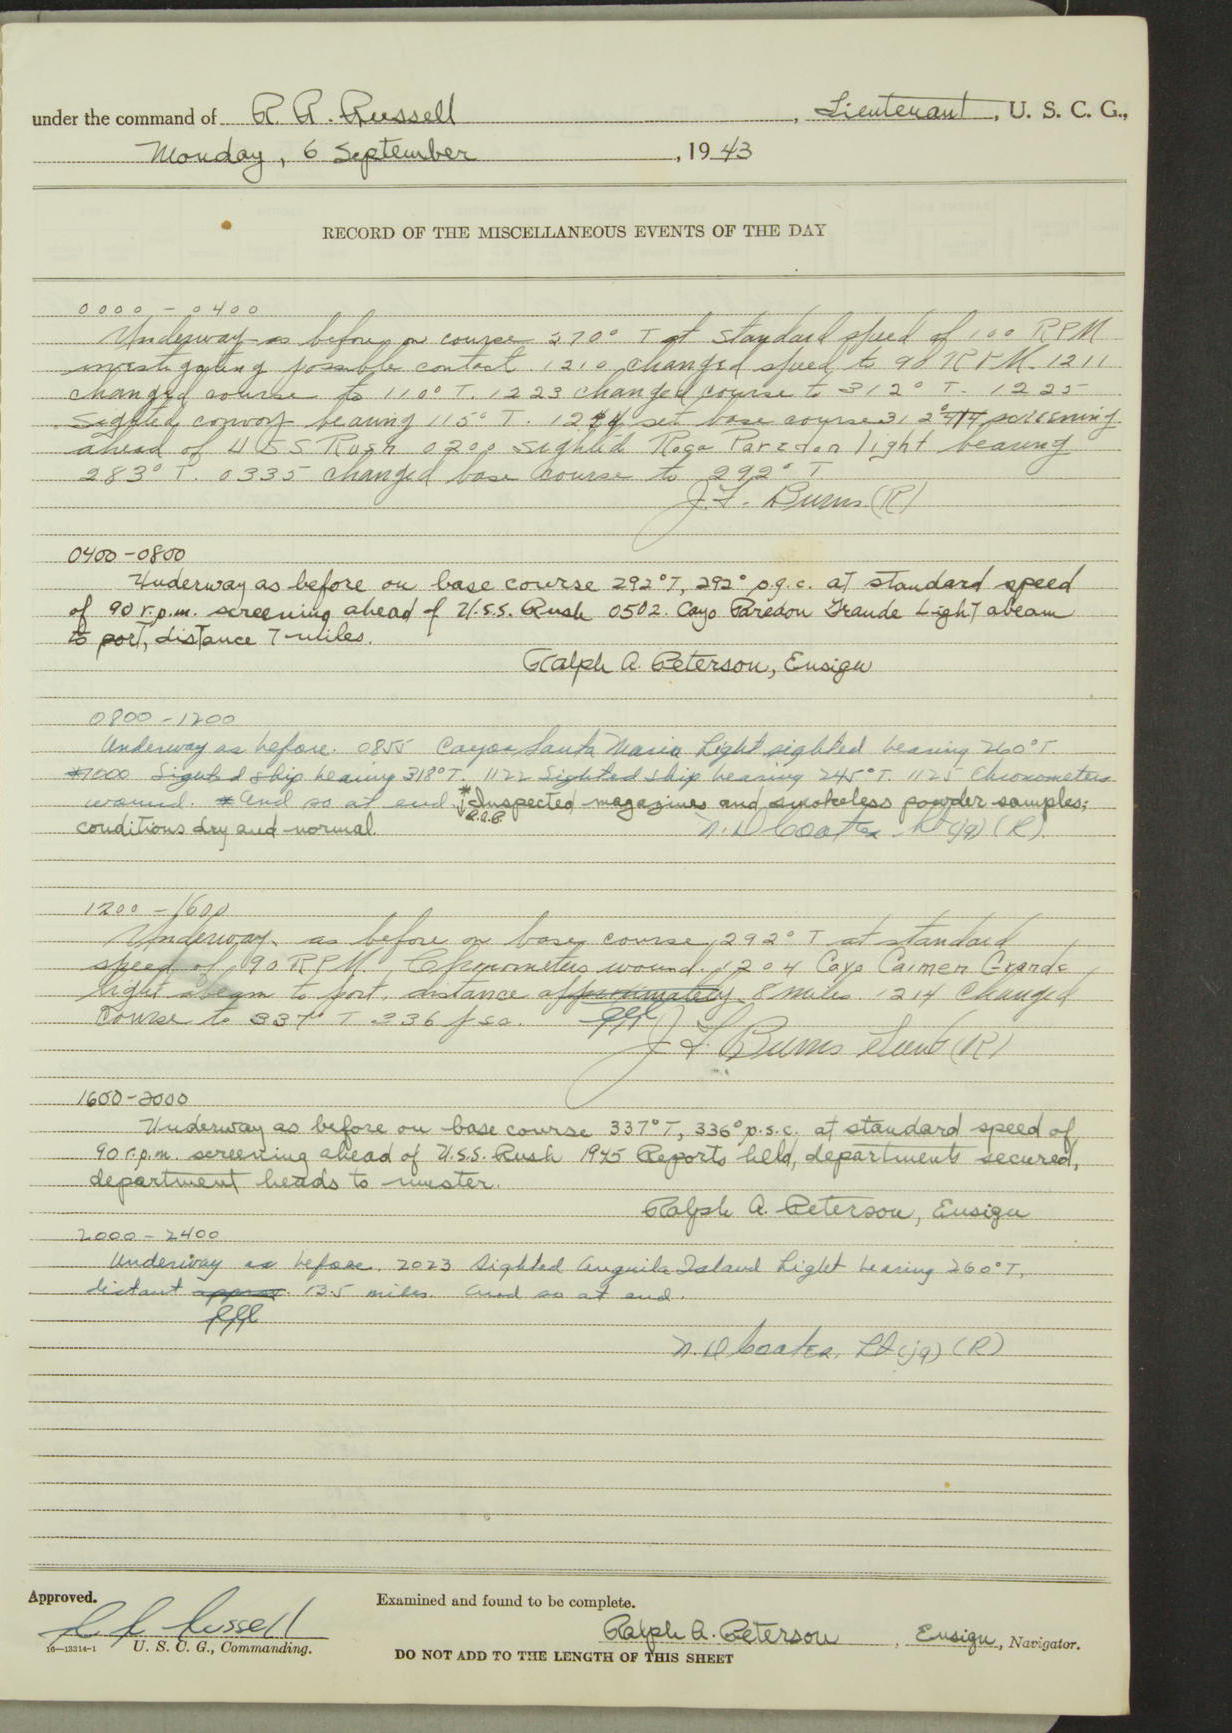 under the command of R. R. Russell, Lieutenant, U. S. C. G.,
Monday, 6 September, 1943
RECORD OF THE MISCELLANEOUS EVENTS OF THE DAY
0000 - 0400
Underway as before on course 270° T at standard speed of 100 RPM
investigating possible contact. 1210 changed speed to 90 RPM. 1211
changed course to 110° T. 1223 changed course to 312° T. 1225
Sighted convoy bearing 115° T. set base course 312° screening
ahead of USS Rush 0200 sighted Paredon light bearing
283° T. 0335 changed base course to 292° T
J. F. Burns (R)
0400-0800
Underway as before on base course 292°T, 292° p.g.c. at standard speed
of 90 r.p.m. screening ahead of U.S.S. Rush 0502. Cayo Paredon Grande Light abeam
to port, distance 7 miles.
Ralph A. Peterson, Ensign
0800-1200
Underway as before. 0855 Cayos Santa Maria Light sighted bearing 260°T.
*1000 Sighted ship bearing 318°T. 1122 Sighted ship bearing 245°T. 1125 Chronometers
wound. * And so at end. * Inspected magazines and smokeless powder samples;
conditions dry and normal. N. D. Coates Lt (jg) (R).
1200 - 1600
Underway as before on base course 292° T at standard
speed of 90 RPM. Chronometers wound. 1204 Cayo Caimen Grande
light abeam to port, distance approximately 8 miles. 1214 changed
course to 337° T 336 psc.
J F Burns Lieut (R)
1600-2000
Underway as before on base course 337°T, 336° p.s.c. at standard speed of
90 r.p.m. screening ahead of U.S.S. Rush 1945 Reports held, departments secured,
department heads to muster.
Ralph A. Peterson, Ensign
2000-2400
Underway as before. 2023 Sighted Anguila Island Light bearing 260°T,
distant approx. 13.5 miles. And so at end.
N. D. Coates, Lt (jg) (R)
Approved.
Examined and found to be complete.
R R Russell
Ralph A. Peterson, Ensign, Navigator.
16—13314-1 U. S. C. G., Commanding.
DO NOT ADD TO THE LENGTH OF THIS SHEET